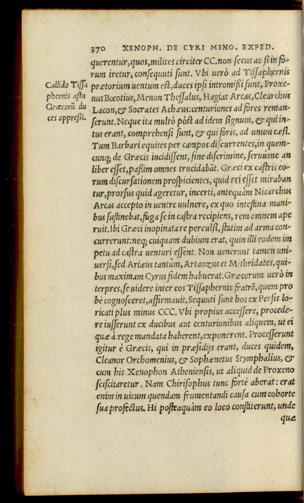 370 XENOPH. DE CYRI MINO. EXPED.
querentur, quos, milites circiter CC. non secus ac si in fo-
rum iretur, consequuti sunt. Vbi uerò ad Tissaphernis
Callido Tissa prætorium uentum est, duces ipsi intromissi sunt, Proxe-
phernis astu nus Bœotius, Menon Thessalus, Hagias Arcas, Clearchus
Græcorũ du Lacon, & Socrates Achæus: centuriones ad fores reman-
ces oppressi. serunt. Neque ita multò pòst ad idem signum, & qui in-
tus erant, comprehensi sunt, & qui foris, ad unum cæsi.
Tum Barbari equites per campos discurrentes, in quem-
cunq; de Græcis incidissent, sine discrimine, seruus ne an
liber esset, passim omnes trucidabãt. Græci ex castris eo-
rum discursationem prospicientes, quid rei esset miraban
tur, prorsus quid ageretur, incerti, antequàm Nicarchus
Arcas accepto in uentre uulnere, ex quo intestina mani-
bus sustinebat, fuga se in castra recipiens, rem omnem ape
ruit. Ibi Græci inopinata re perculsi, statim ad arma con-
currerunt: neq; cuiquam dubium erat, quin illi eodem im
petu ad castra uenturi essent. Non uenerunt tamen uni-
uersi, sed Ariæus tantùm, Artaogus et Mithridates, qui-
bus maximam Cyrus fidem habuerat. Græcorum uerò in
terpres, se uidere inter eos Tissaphernis fratrẽ, quem pro
bè cognosceret, affirmauit. Sequuti sunt hos ex Persis lo-
ricati plus minus CCC. Vbi propius accessere, procede-
re iusserunt ex ducibus aut centurionibus aliquem, ut ei
quæ à rege mandata haberent, exponerent. Processerunt
igitur è Græcis, qui in præsidijs erant, duces quidem,
Cleanor Orchomenius, & Sophænetus Stymphalius, &
cum his Xenophon Atheniensis, ut aliquid de Proxeno
sciscitaretur. Nam Chirisophus tunc fortè aberat: erat
enim in uicum quendam frumentandi causa cum cohorte
sua profectus. Hi postquàm eo loco constiterunt, unde
quæ